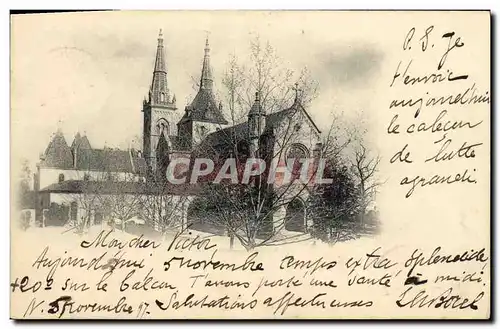 P.S. Je
t'envoie
aujourd'hui
le caleçon
de lutte
agrandi.
CPARAMA
Mon cher Victor
Aujourd'hui 5 novembre temps extra splendide
+20° sur le balcon. Te portes une santé à midi.
N. 5 Novembre 97. Salutations affectueuses